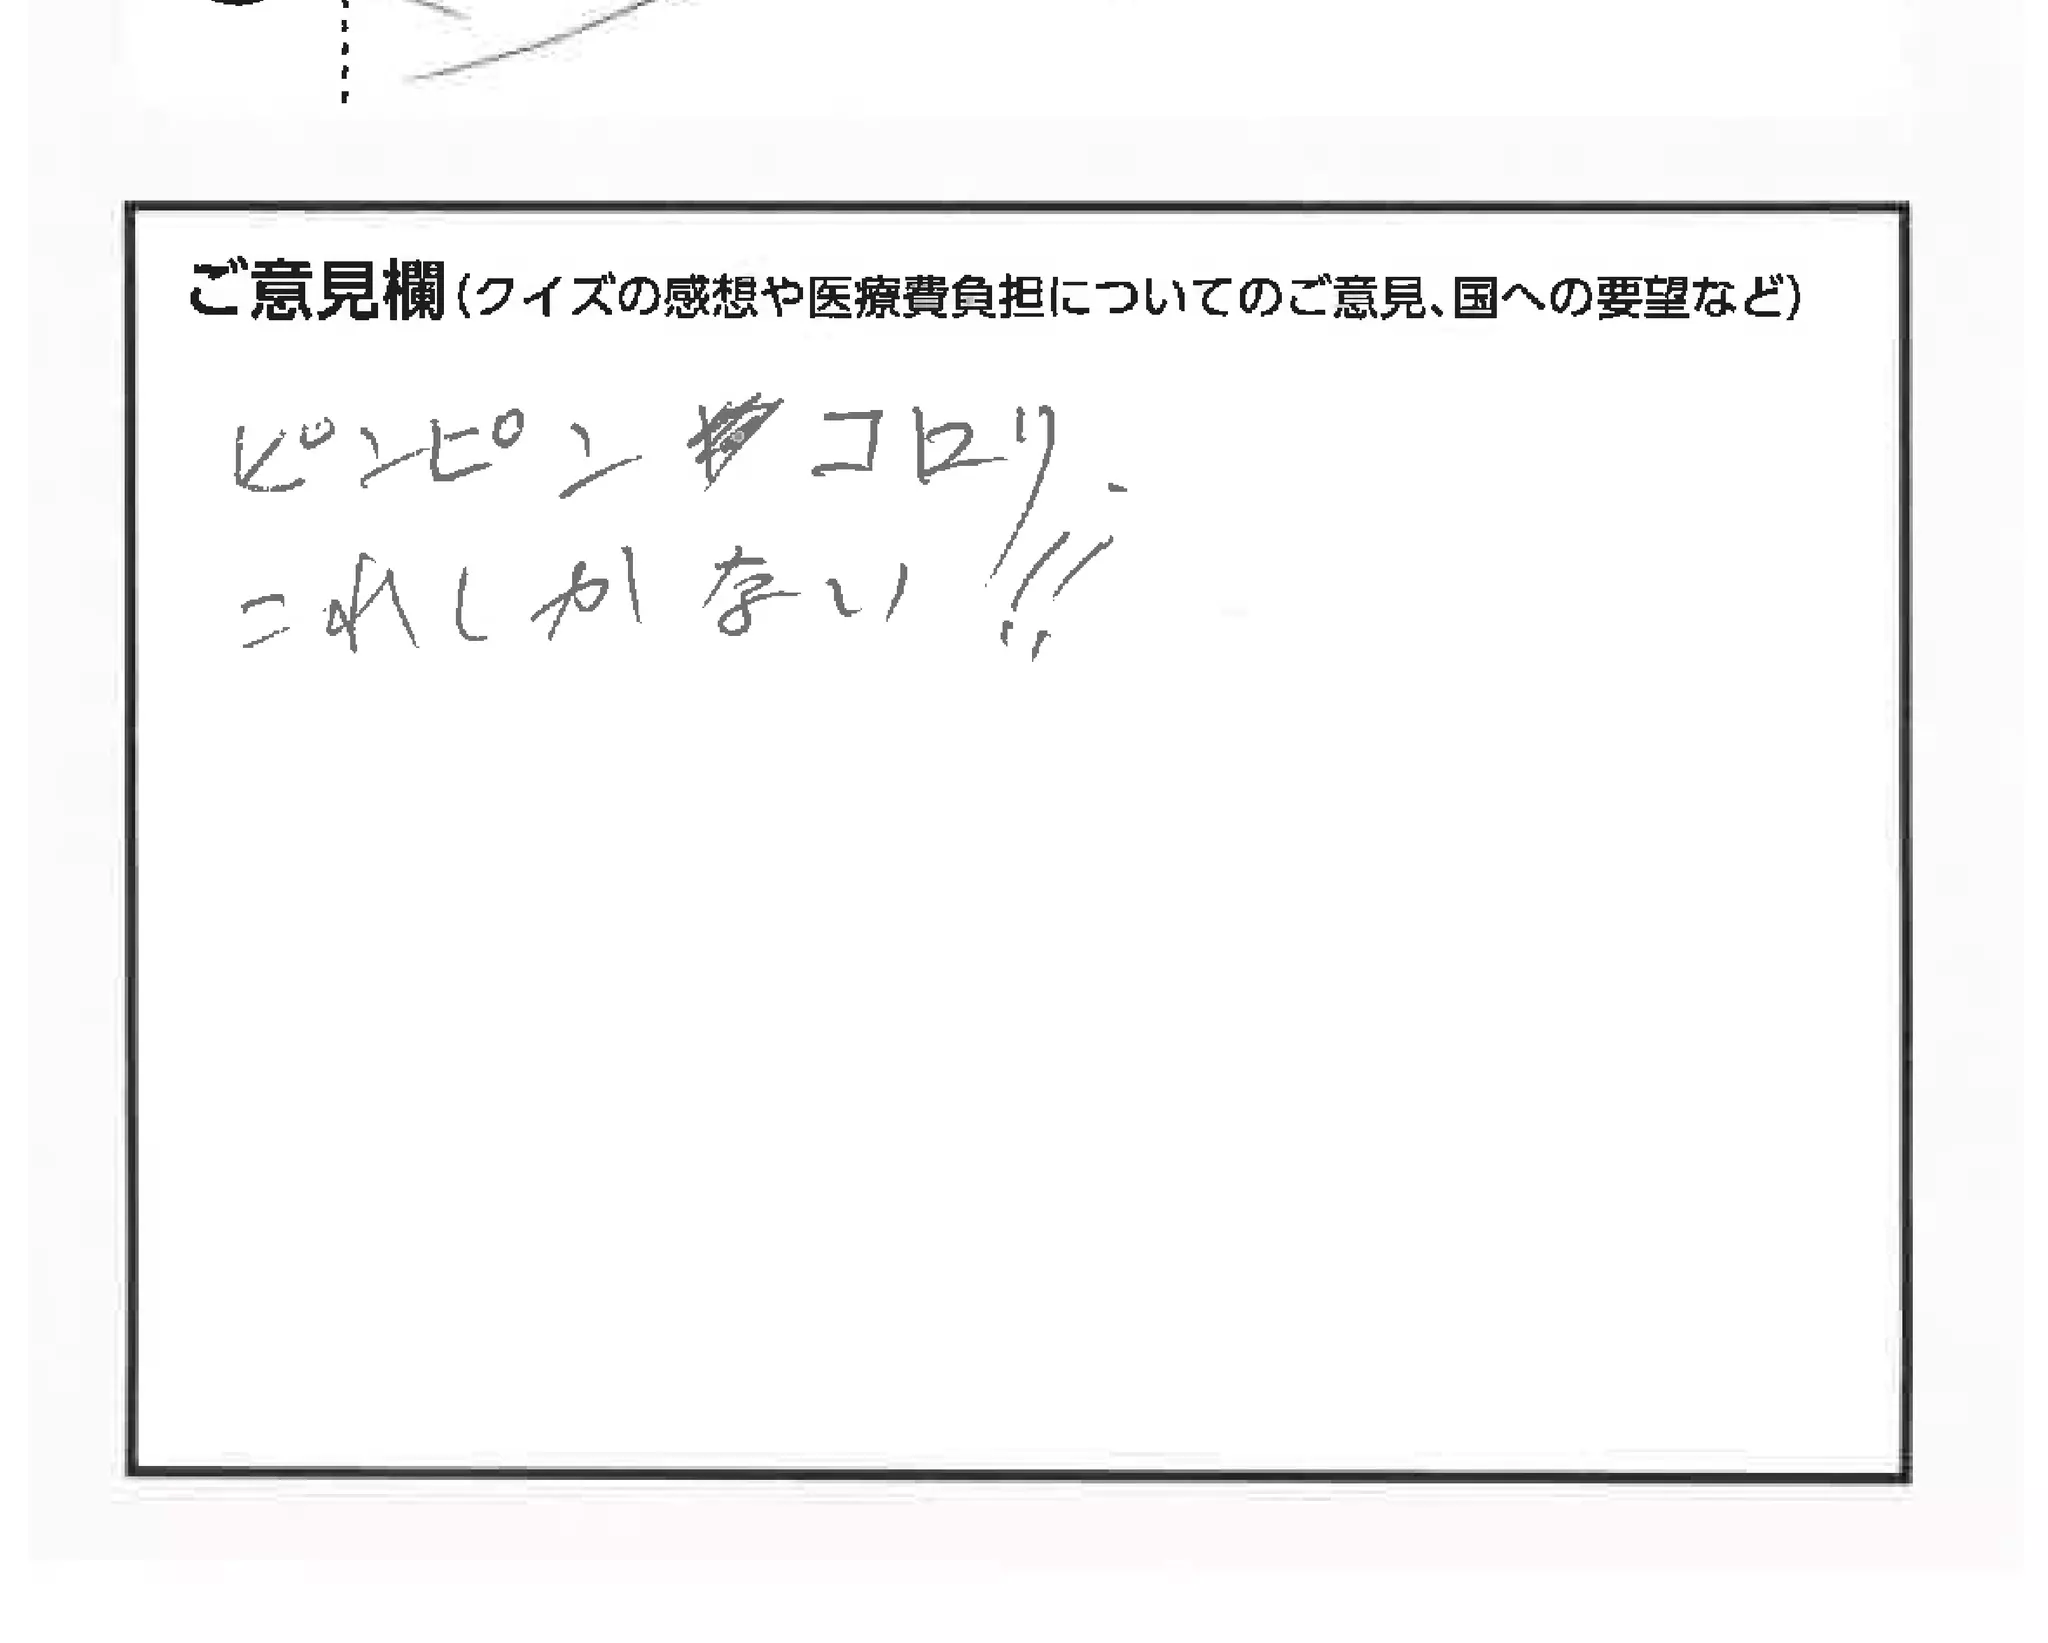 ご意見欄(クイズの感想や医療費負担についてのご意見、国への要望など)
ピンピンコロリ、
これしかない!!